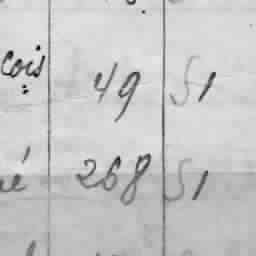 çois 49 51
é 268 51